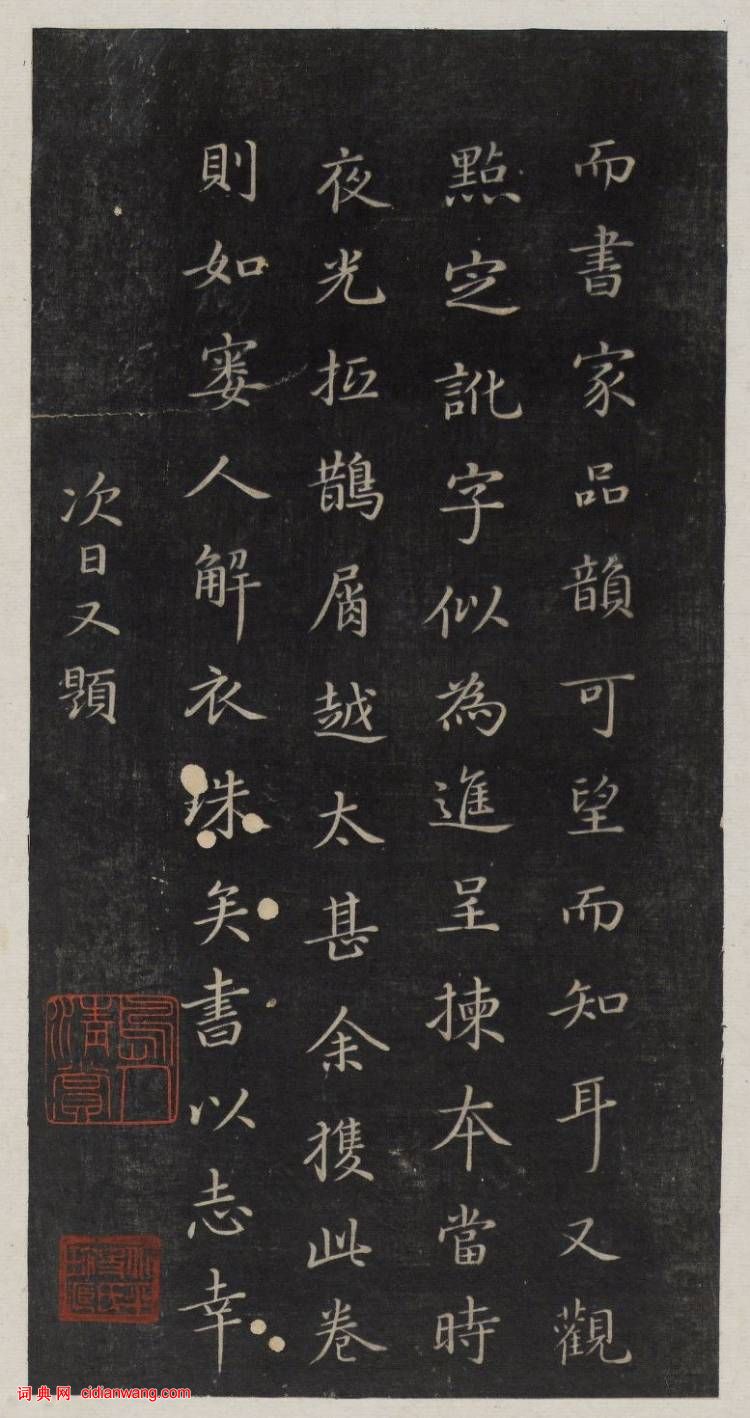 而書家品韻可望而知耳又觀
點定訛字似為進呈揀本當時
夜光抵鵲屑越太甚余擭此卷
則如窶人解衣珠矣書以志幸
次日又題
词典网 cidianwang.com